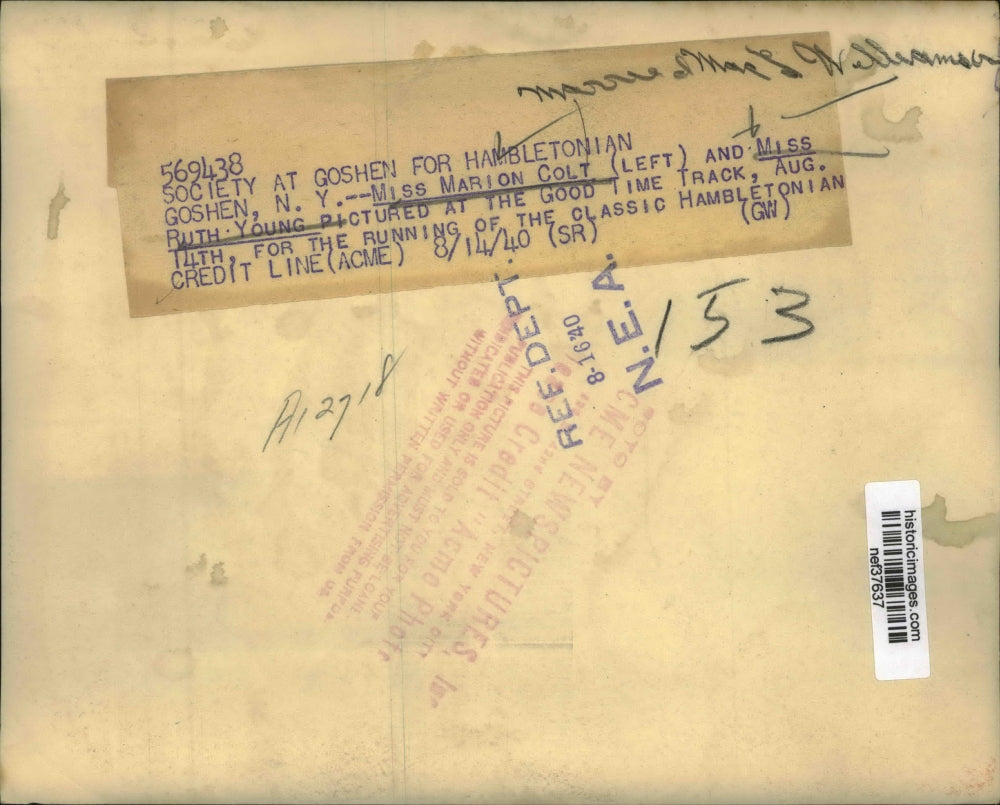 569438
SOCIETY AT GOSHEN FOR HAMBLETONIAN
GOSHEN, N. Y.--MISS MARION COLT (LEFT) AND MISS
RUTH YOUNG PICTURED AT THE GOOD TIME TRACK, AUG.
14TH, FOR THE RUNNING OF THE CLASSIC HAMBLETONIAN
CREDIT LINE(ACME) 8/14/40 (SR) (GW)
REF. DEPT.
8-1640
N. E. A.
153
A12718
PHOTO BY
ACME NEWSPICTURES, Inc
NEW YORK CITY
Credit "Acme Photo
THIS PICTURE IS SOLD TO YOU FOR YOUR
PUBLICATION ONLY AND MUST NOT BE LOANED
SYNDICATED OR USED FOR ADVERTISING PURPOS
WITHOUT WRITTEN PERMISSION FROM US
historicimages.com
nef37637